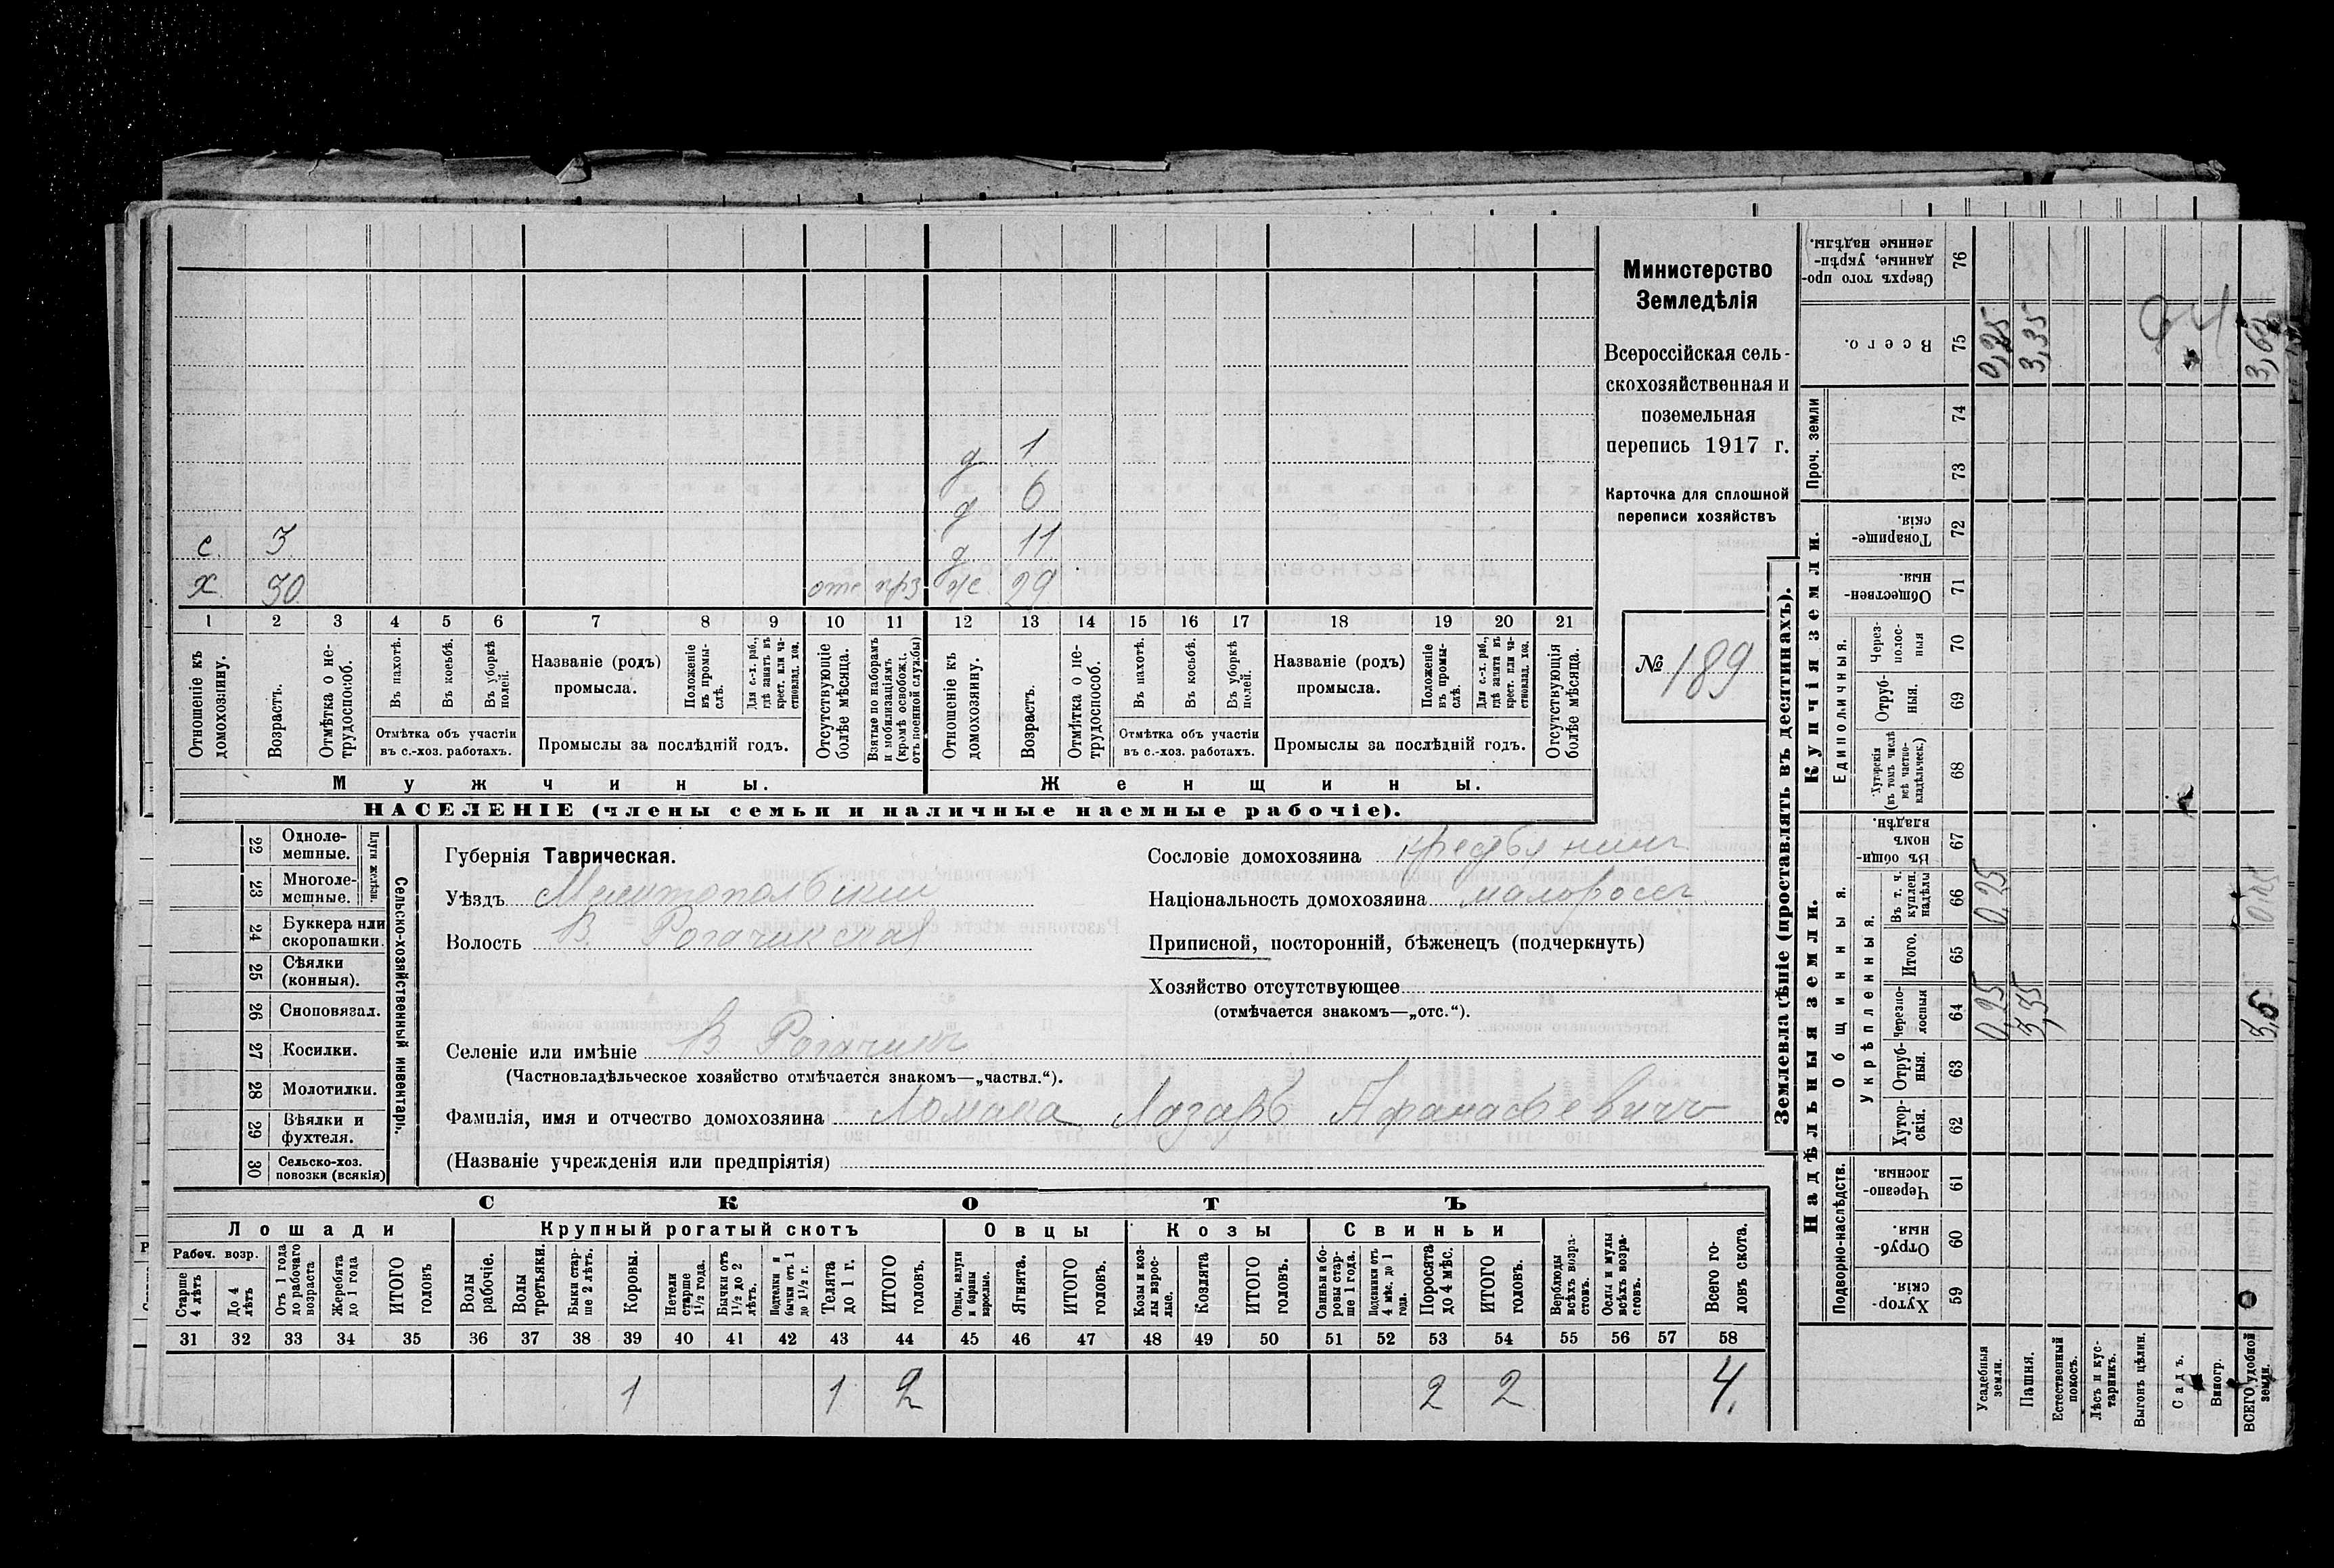 д 1
д 6
с. 3 д 11
х. 30. отс прз ж. 29
1 2 3 4 5 6 7 8 9 10 11 12 13 14 15 16 17 18 19 20 21
Отношеніе къ домохозяину.
Возрастъ.
Отмѣтка о нетрудоспособ.
Въ пахотѣ.
Въ косьбѣ.
Въ уборкѣ полей.
Отмѣтка объ участіи
въ с.-хоз. работахъ.
Названіе (родъ)
промысла.
Положеніе въ промыслѣ.
Для с.-х. раб., гдѣ занятъ въ крест. или частновлад. хоз.
Промыслы за послѣдній годъ.
Отсутствующіе болѣе мѣсяца.
Взятые по наборамъ и мобилизаціямъ (кромѣ освобожд. отъ военной службы)
Отношеніе къ домохозяину.
Возрастъ.
Отмѣтка о нетрудоспособ.
Въ пахотѣ.
Въ косьбѣ.
Въ уборкѣ полей.
Отмѣтка объ участіи
въ с.-хоз. работахъ.
Названіе (родъ)
промысла.
Положеніе въ промыслѣ.
Для с.-х. раб., гдѣ занята въ крест. или частновлад. хоз.
Промыслы за послѣдній годъ.
Отсутствующія болѣе мѣсяца.
Мужчины.
Женщины.
НАСЕЛЕНІЕ (члены семьи и наличные наемные рабочіе).
Министерство
Земледѣлія
Всероссійская сель-
скохозяйственная и
поземельная
перепись 1917 г.
Карточка для сплошной
переписи хозяйствъ
№ 189
22 Однолемешные.
23 Многолемешные.
Плуги желѣзн.
24 Буккера или скоропашки.
25 Сѣялки (конныя).
26 Сноповязал.
27 Косилки.
28 Молотилки.
29 Вѣялки и фухтеля.
30 Сельско-хоз. повозки (всякія)
Сельско-хозяйственный инвентарь.
Губернія Таврическая.
Уѣздъ Мелитопольскій
Волость В. Рогачикская
Селеніе или имѣніе В. Рогачикъ
(Частновладѣльческое хозяйство отмѣчается знакомъ—„частвл.“).
Фамилія, имя и отчество домохозяина Ломака Лазарь Афанасьевичъ
(Названіе учрежденія или предпріятія)
Сословіе домохозяина крестьянинъ
Національность домохозяина малоросъ
Приписной, посторонній, бѣженецъ (подчеркнуть)
Хозяйство отсутствующее
(отмѣчается знакомъ—„отс.“).
СКОТЪ
Лошади
Крупный рогатый скотъ
Овцы
Козы
Свиньи
Рабоч. возр.
Старше 4 лѣтъ
До 4 лѣтъ
Отъ 1 года до рабочаго возраста
Жеребята до 1 года
ИТОГО головъ
Волы рабочіе.
Волы третьяки.
Быки старше 2 лѣтъ.
Коровы.
Нетели старше 1½ года.
Бычки отъ 1½ до 2 лѣтъ.
Подтелки и бычки отъ 1 до 1½ г.
Телята до 1 г.
ИТОГО головъ.
Овцы, валухи и бараны взрослые.
Ягнята.
ИТОГО головъ.
Козы и козлы взрослые.
Козлята
ИТОГО головъ.
Свиньи и боровы старше 1 года.
Подсвинки отъ 4 мѣс. до 1 года.
Поросята до 4 мѣс.
ИТОГО головъ.
Верблюды всѣхъ возрастовъ.
Ослы и мулы всѣхъ возрастовъ.
Всего головъ скота.
31 32 33 34 35 36 37 38 39 40 41 42 43 44 45 46 47 48 49 50 51 52 53 54 55 56 57 58
1 1 2 2 2 4.
Землевладѣніе (проставлять въ десятинахъ).
Надѣльныя земли.
Купчія земли.
Проч. земли
Подворно-наслѣдств.
Общинныя.
Укрѣпленныя.
Единоличныя.
Хуторскія. 59
Отрубныя. 60
Черезполосныя. 61
Хуторскія. 62
Отрубныя. 63
Черезполосныя 64
Итого. 65
Въ т. ч. куплен. надѣлы 66
Въ общинномъ владѣн. 67
Хуторскія (въ томъ числѣ всѣ частновладѣльческ.) 68
Отрубныя. 69
Черезполосныя 70
Общественныя. 71
Товарищескія. 72
73
74
Всего. 75
Сверхъ того проданные, укрѣпленные надѣлы. 76
Усадебныя земли. 0,25 0,25 0,25
Пашня. 3,35 3,35
Естественный покосъ.
Лѣсъ и кустарникъ.
Выгонъ цѣлин.
Садъ.
Виногр.
ВСЕГО удобной земли.
94